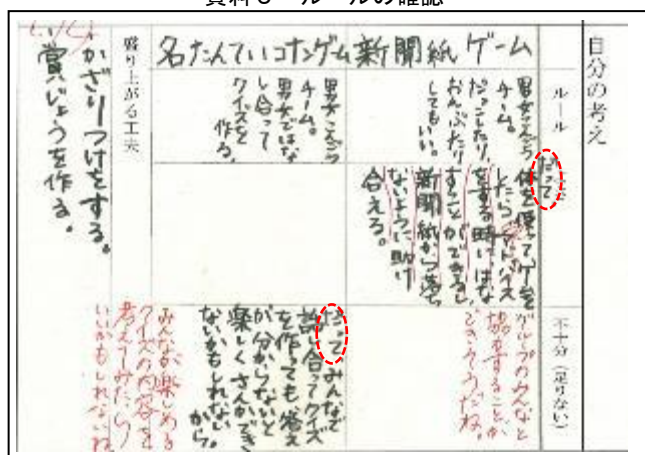 自分の考え
ルール
だって
不十分(足りない)
新聞紙ゲーム
男女こんごう
チーム。
だっこしたり、
おんぶしたり
してもいい。
体を使って、ゲームを
したら、アドバイス
をする時に、はな
すことができるし、
新聞紙から落ち
ないように助け
合える。
グループのみんなと
協力することが
できそうだね。
名たんていコナンゲーム
男女こんごう
チーム。
男女ではな
し合って
クイズを
作る。
だってみんなで
話し合ってクイズ
を作っても答え
が分からないと
楽しくさんかでき
ないかもしれない
から。
みんなが楽しめる
クイズの内容を
考えてみたら
いいかもしれないね
盛り上がる工夫
かざりつけをする。
賞じょうを作る。